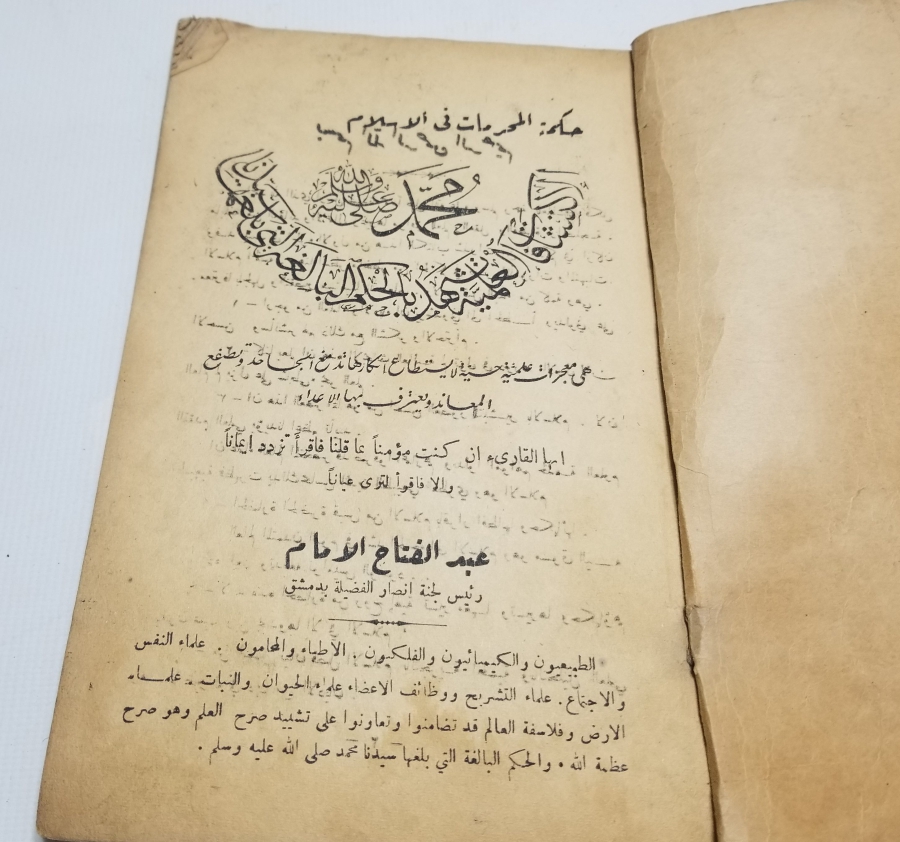 حكمة المحرمات في الاسلام
بسم الله الرحمن الرحيم
محمد صلى الله عليه وسلم
الاكتشافات العلمية تشهد بالحكم البالغة التي بلغها سيدنا
هي معجزات علمية حسية لا يستطاع انكارها تدفع الجاحد وتصفع
المعاند ويعترف بها الاعداء
ايها القارىء ان كنت مؤمناً بما قلنا فاقرأ تزدد ايماناً
والا فاقرأ لترى عياناً
عبد الفتاح الامام
رئيس لجنة انصار الفضيلة بدمشق
الطبيعيون والكيميائيون والفلكيون . الاطباء والمحامون . علماء النفس
والاجتماع . علماء التشريح ووظائف الاعضاء علماء الحيوان والنبات . علمـــاء
الارض وفلاسفة العالم قد تضامنوا وتعاونوا على تشييد صرح العلم وهو صرح
عظمة الله . والحكم البالغة التي بلغها سيدنا محمد صلى الله عليه وسلم .